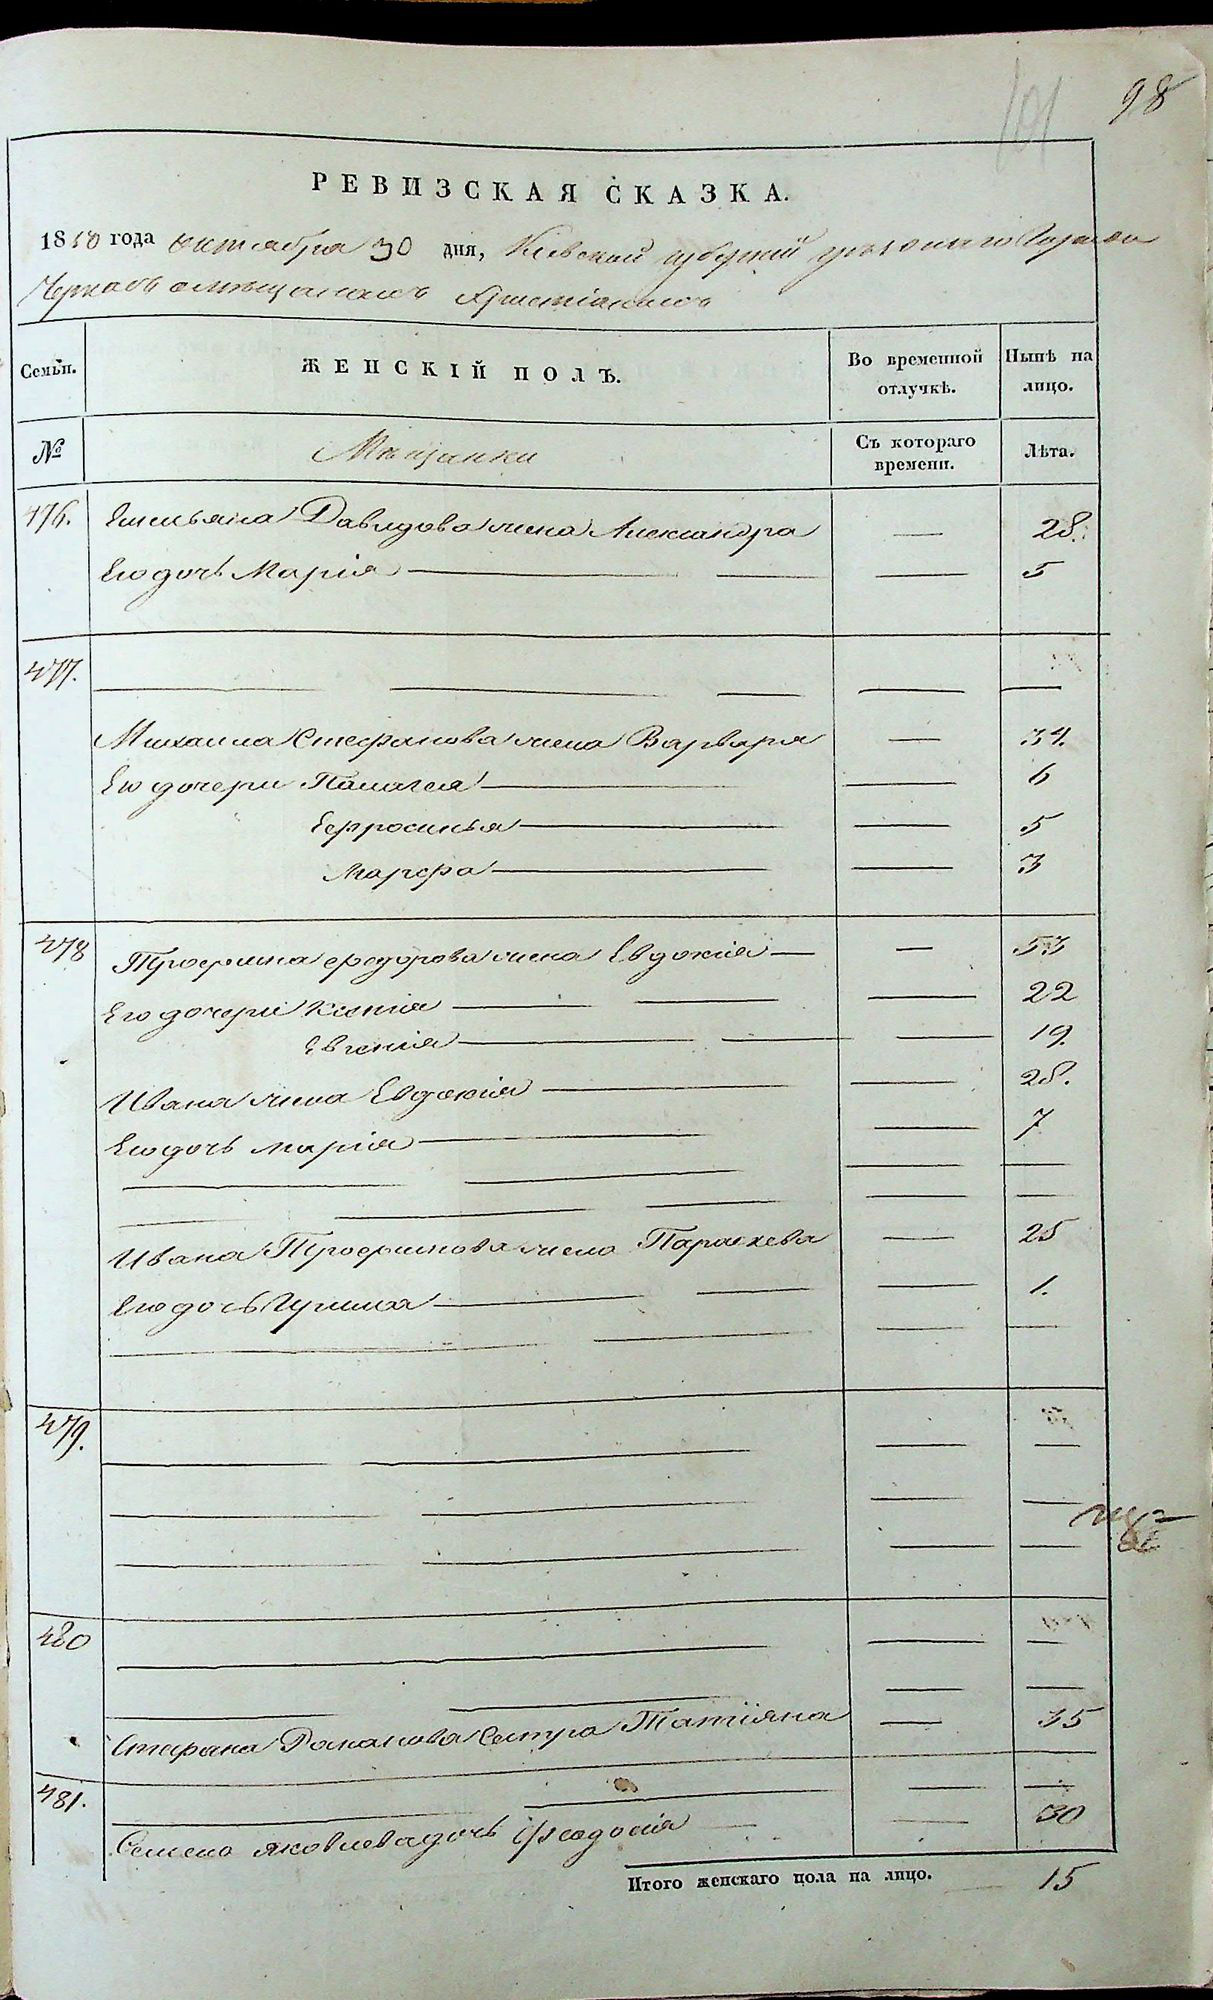 101
98
РЕВИЗСКАЯ СКАЗКА.
1850 года октября 30 дня, Кіевской губерніи уѣзднаго города
Черкасъ о мѣщанахъ христіанахъ
Семьи. ЖЕНСКІЙ ПОЛЪ. Во временной отлучкѣ. Нынѣ на лицо.
№ Мѣщанки Съ котораго времени. Лѣта.
476. Емельяна Давидова жена Александра — 28.
Его дочь Марія — 5
477.
Михаила Стефанова жена Варвара — 34.
Его дочери Палагея — 6
Ефросинья — 5
Марфа — 3
478 Трофима Федорова жена Евдокія — 53
Его дочери Ксенія — 22
Евгенія — 19.
Ивана жена Евдокія — 28.
Его дочь Марія — 7
Ивана Трофимова жена Параскева — 25
Его дочь Ирина — 1.
479.
480
Стефана Романова сестра Татіяна — 35
481.
Семена Яковлева дочь Феодосія — 30
Итого женскаго пола на лицо. 15